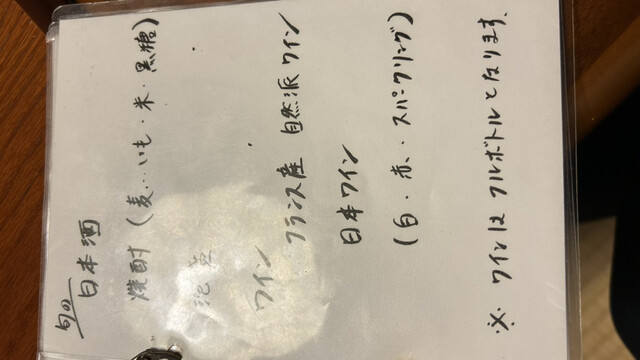 旬の
日本酒
焼酎(麦・いも・米・黒糖)
泡盛
ワイン
フランス産 自然派ワイン
日本ワイン
(白・赤・スパークリング)
※ワインはフルボトルとなります。